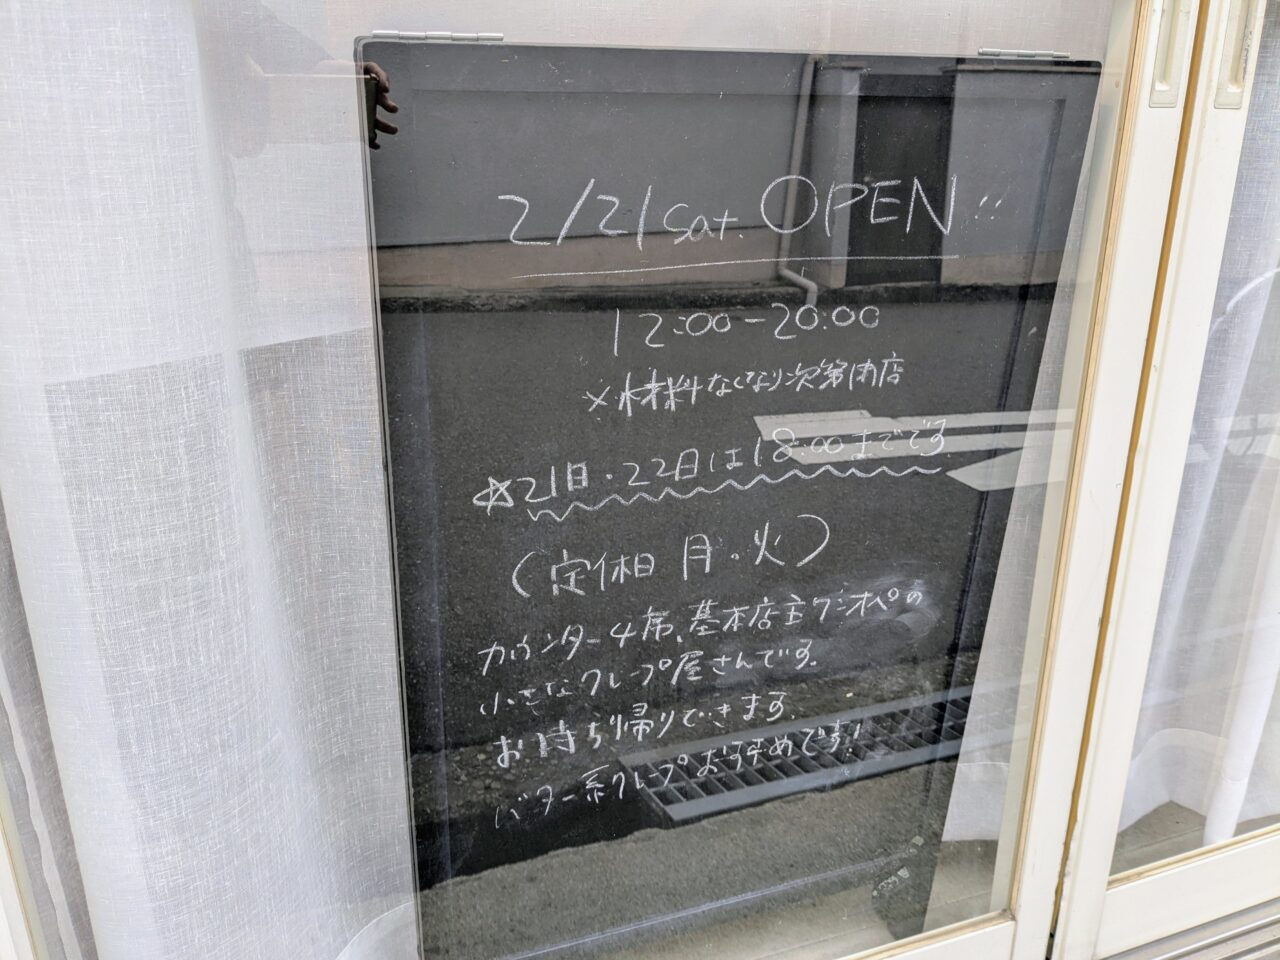 2/21 Sat. OPEN!!
12:00-20:00
※材料なくなり次第閉店
☆21日・22日は18:00までです
(定休日 月・火)
カウンター4席、基本店主ワンオペの
小さなクレープ屋さんです。
お持ち帰りできます。
バター系クレープおすすめです!